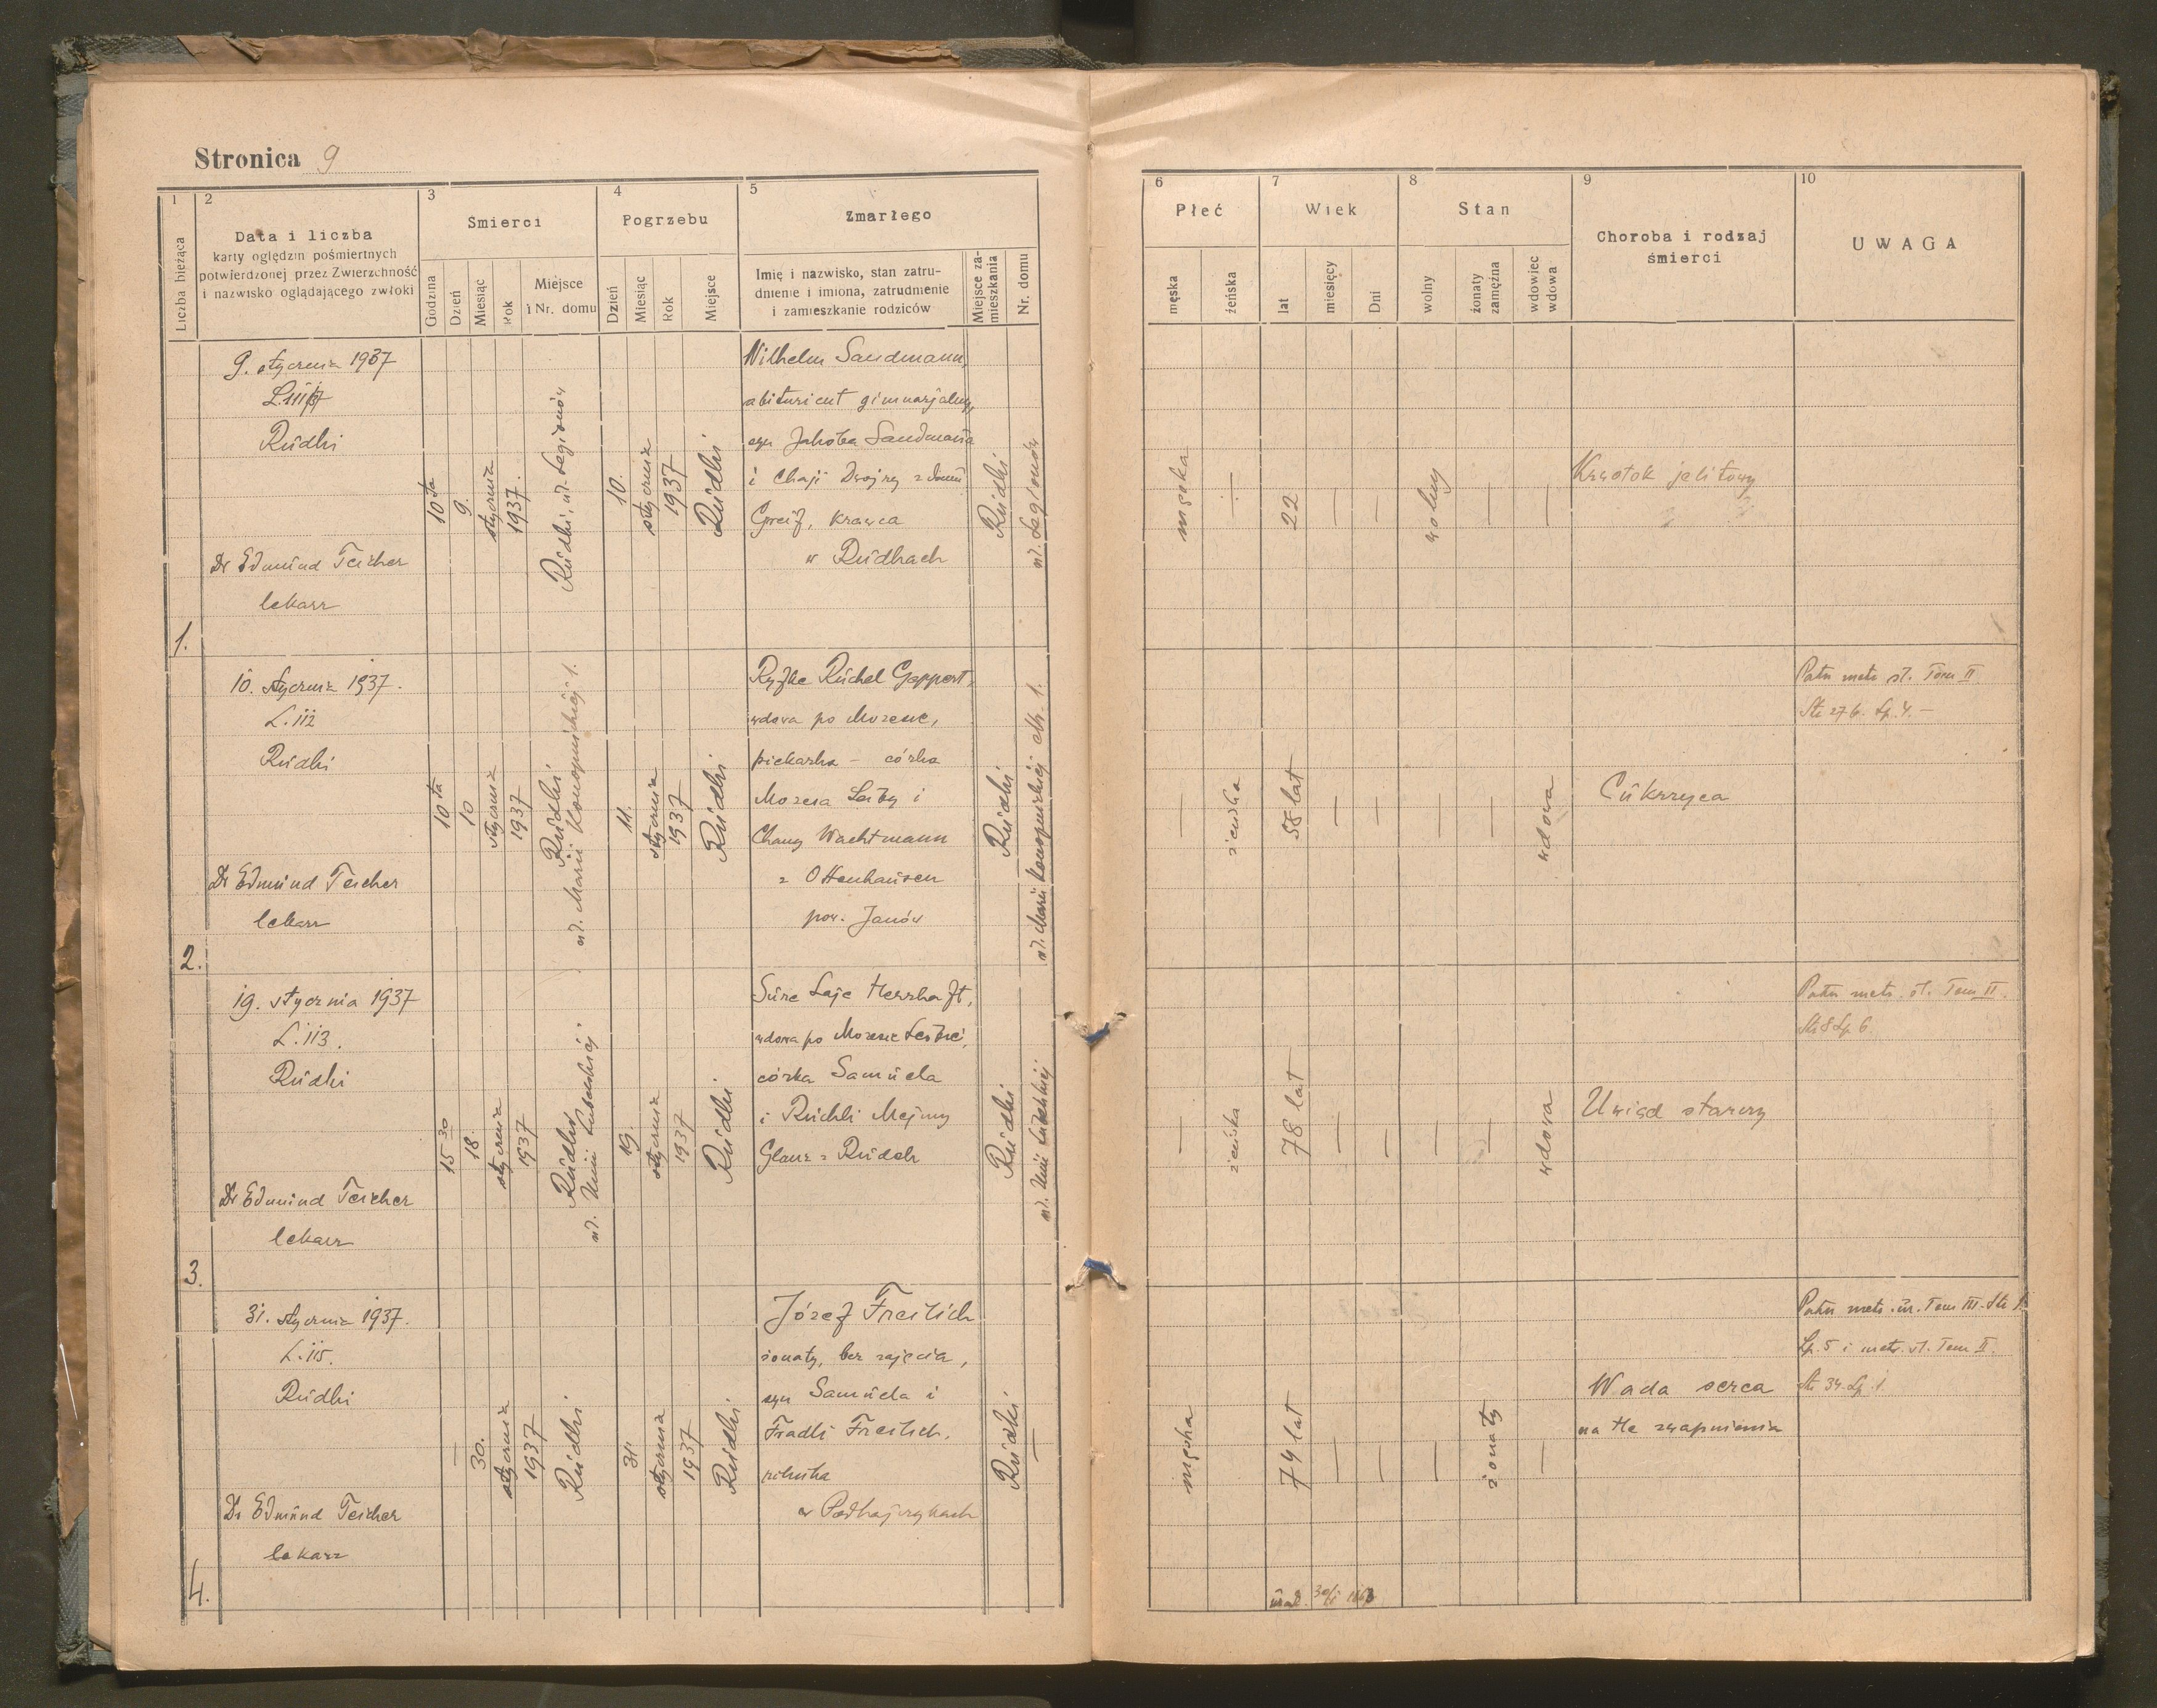 Stronica 9
1
2
3
4
5
6
7
8
9
10
Liczba bieżąca
Data i liczba
karty oględzin pośmiertnych
potwierdzonej przez Zwierzchność
i nazwisko oglądającego zwłoki
Smierci
Godzina
Dzień
Miesiąc
Rok
Miejsce
i Nr. domu
Pogrzebu
Dzień
Miesiąc
Rok
Miejsce
Zmarłego
Imię i nazwisko, stan zatru-
dnienie i imiona, zatrudnienie
i zamieszkanie rodziców
Miejsce za-
mieszkania
Nr. domu
Płeć
męska
żeńska
Wiek
lat
miesięcy
Dni
Stan
wolny
żonaty
zamężna
wdowiec
wdowa
Choroba i rodzaj
śmierci
UWAGA
1.
9. stycznia 1937
Rudki
Dr Edmund Teicher
lekarz
10ta
9.
stycznia
1937.
Rudki, ul. Legionów
10.
stycznia
1937
Rudki
Wilhelm Sandmann,
abiturient gimnazjalny,
syn Jakóba Sandmana
i Chaji Dwojry z domu
Greif, krawca
w Rudkach
Rudki
ul. Legionów
męska
—
22
—
—
wolny
—
—
Krwotok jelitowy
2.
10. stycznia 1937.
L. 112
Rudki
Dr Edmund Teicher
lekarz
10ta
10
stycznia
1937
Rudki
ul. Marii Konopnickiej 1.
11.
stycznia
1937
Rudki
Ryfke Ruchel Geppert,
wdowa po Mozesie,
piekarka - córka
Mozesa Leiby i
Chany Wachtmann
z Ottenhausen
pow. Janów
Rudki
ul. Marii Konopnickiej Nr. 1.
—
żeńska
58 lat
—
—
—
—
wdowa
Cukrzyca
Patrz metr. śl. Tom II
Str 276. Lp. 4. —
3.
19. stycznia 1937
L. 113.
Rudki
Dr Edmund Teicher
lekarz
15 30
18.
stycznia
1937
Rudki
ul. Unii Lubelskiej
19.
stycznia
1937
Rudki
Sure Laje Herzhaft,
wdowa po Mozesie Leibie,
córka Samuela
i Ruchli Mejmy
Glanz z Rudek
Rudki
ul. Unii Lubelskiej
—
żeńska
78 lat
—
—
—
—
wdowa
Uwiąd starczy
Patrz metr. śl. Tom II.
Str 8 Lp. 6.
4.
31. stycznia 1937.
L. 115.
Rudki
Dr Edmund Teicher
lekarz
—
30.
stycznia
1937
Rudki
31.
stycznia
1937
Rudki
Józef Freilich
żonaty, bez zajęcia,
syn Samuela i
Fradli Freilich,
rolnika
w Podhajczykach
Rudki
—
męska
74 lat
—
—
—
żonaty
—
Wada serca
na tle zwapnienia
Patrz metr. ur. Tom III. Str 1.
Lp. 5 i metr. śl. Tom II.
Str 34. Lp. 1